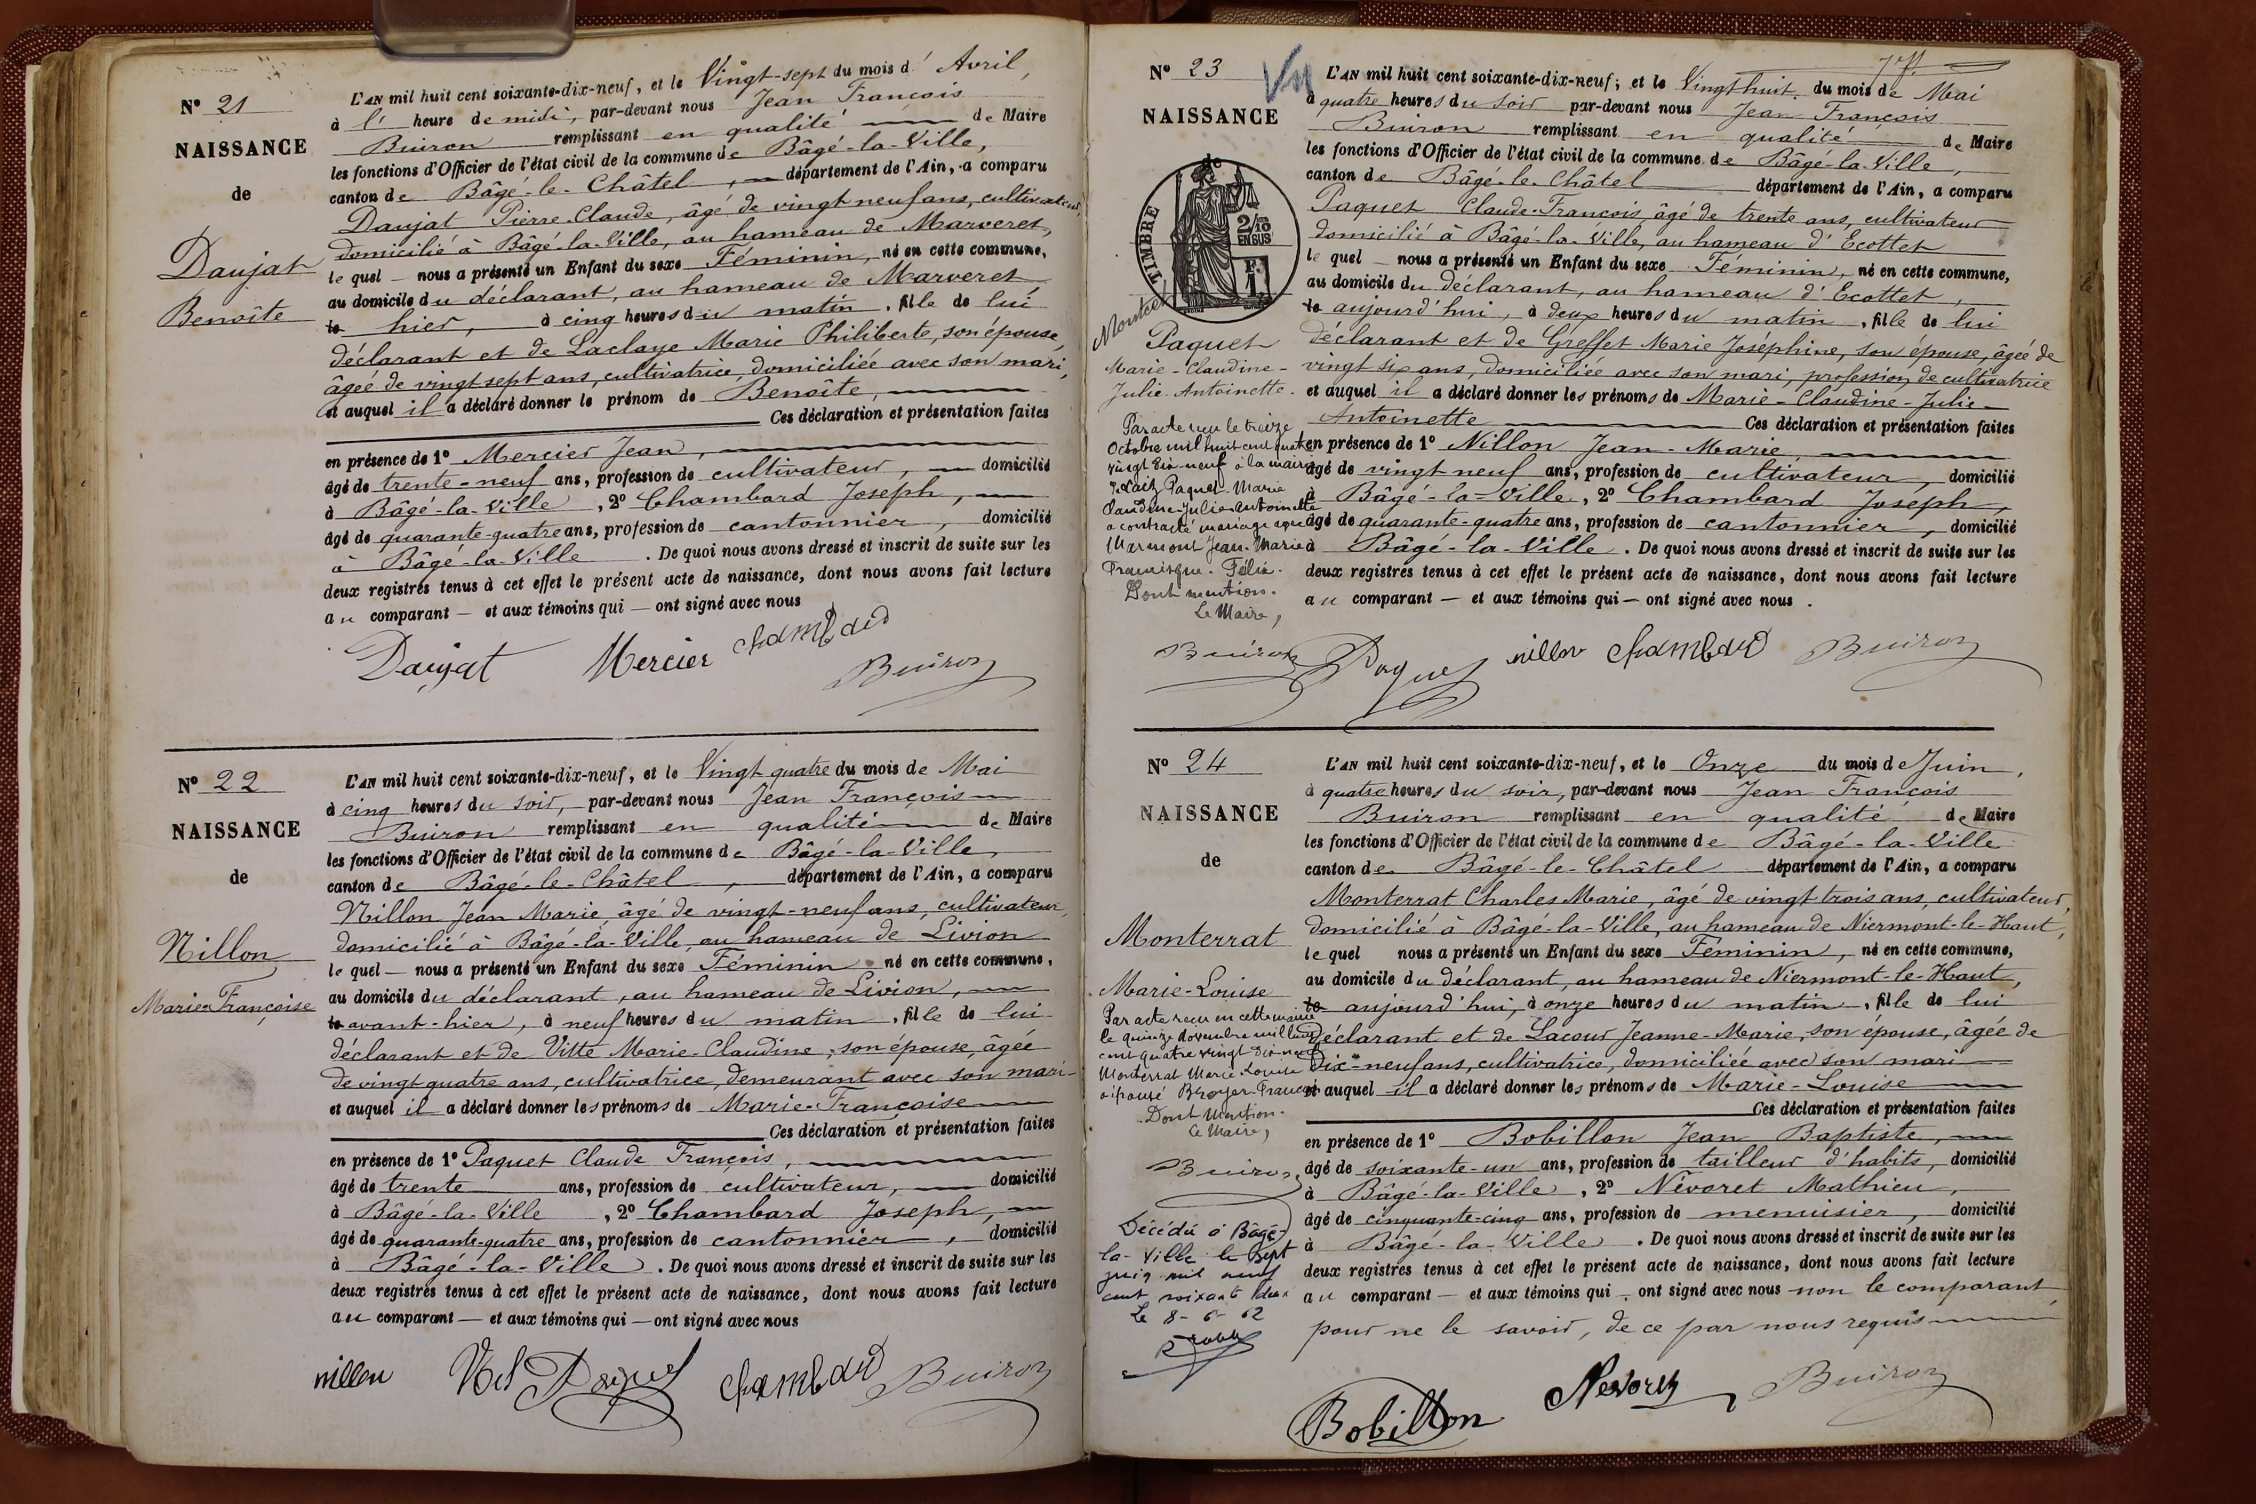 N° 21
NAISSANCE
de
Daujat
Benoîte
L'AN mil huit cent soixante-dix-neuf, et le Vingt-sept du mois d' Avril,
à l' heure de midi, par-devant nous Jean François
Buiron remplissant en qualité de Maire
les fonctions d'Officier de l'état civil de la commune de Bâgé-la-Ville,
canton de Bâgé-le-Châtel, département de l'Ain, a comparu
Daujat Pierre-Claude, âgé de vingt neuf ans, cultivateur,
domicilié à Bâgé-la-Ville, au hameau de Marveret,
le quel nous a présenté un Enfant du sexe Féminin, né en cette commune,
au domicile du déclarant, au hameau de Marveret,
le hier, à cinq heures du matin, fille de lui
déclarant et de Laclaye Marie Philiberte, son épouse,
âgée de vingt sept ans, cultivatrice, domiciliée avec son mari,
et auquel il a déclaré donner le prénom de Benoîte,
Ces déclaration et présentation faites
en présence de 1° Mercier Jean,
âgé de trente-neuf ans, profession de cultivateur, domicilié
à Bâgé-la-Ville, 2° Chambard Joseph,
âgé de quarante-quatre ans, profession de cantonnier, domicilié
à Bâgé-la-Ville. De quoi nous avons dressé et inscrit de suite sur les
deux registres tenus à cet effet le présent acte de naissance, dont nous avons fait lecture
au comparant — et aux témoins qui — ont signé avec nous
Daujat Mercier Chambard
Buiron
N° 22
NAISSANCE
de
Nillon
Marie-Françoise
L'AN mil huit cent soixante-dix-neuf, et le Vingt quatre du mois de Mai
à cinq heures du soir, par-devant nous Jean François
Buiron remplissant en qualité de Maire
les fonctions d'Officier de l'état civil de la commune de Bâgé-la-Ville,
canton de Bâgé-le-Châtel, département de l'Ain, a comparu
Nillon Jean Marie, âgé de vingt-neuf ans, cultivateur,
domicilié à Bâgé-la-Ville, au hameau de Livion
le quel — nous a présenté un Enfant du sexe Féminin né en cette commune,
au domicile du déclarant, au hameau de Livion,
le avant-hier, à neuf heures du matin, fille de lui
déclarant et de Vitte Marie-Claudine, son épouse, âgée
de vingt quatre ans, cultivatrice, demeurant avec son mari
et auquel il a déclaré donner les prénoms de Marie-Françoise
Ces déclaration et présentation faites
en présence de 1° Paquet Claude François,
âgé de trente ans, profession de cultivateur, domicilié
à Bâgé-la-Ville, 2° Chambard Joseph,
âgé de quarante-quatre ans, profession de cantonnier, domicilié
à Bâgé-la-Ville. De quoi nous avons dressé et inscrit de suite sur les
deux registres tenus à cet effet le présent acte de naissance, dont nous avons fait lecture
au comparant — et aux témoins qui — ont signé avec nous
nillon Paquet Chambard Buiron
N° 23
NAISSANCE
de
TIMBRE
2/10
EN SUS
Paquet
Marie-Claudine-
Julie-Antoinette.
Par acte reçu le treize
Octobre mil huit cent quatre
vingt dix-neuf à la mairie
Paquet Marie
Claudine-Julie-Antoinette
a contracté mariage avec
Marmont Jean-Marie
Francisque-Félix.
Dont mention.
Le Maire,
Buiron
L'AN mil huit cent soixante-dix-neuf; et le Vingt huit du mois de Mai
à quatre heures du soir par-devant nous Jean François
Buiron remplissant en qualité de Maire
les fonctions d'Officier de l'état civil de la commune de Bâgé-la-Ville,
canton de Bâgé-le-Châtel département de l'Ain, a comparu
Paquet Claude-François, âgé de trente ans, cultivateur
domicilié à Bâgé-la-Ville, au hameau d'Ecottet
le quel — nous a présenté un Enfant du sexe Féminin, né en cette commune,
au domicile du déclarant, au hameau d'Ecottet,
le aujourd'hui, à deux heures du matin, fille de lui
déclarant et de Greffet Marie Joséphine, son épouse, âgée de
vingt six ans, domiciliée avec son mari, profession de cultivatrice
et auquel il a déclaré donner les prénoms de Marie-Claudine-Julie-
Antoinette Ces déclaration et présentation faites
en présence de 1° Nillon Jean-Marie,
âgé de vingt neuf ans, profession de cultivateur, domicilié
à Bâgé-la-Ville, 2° Chambard Joseph,
âgé de quarante-quatre ans, profession de cantonnier, domicilié
à Bâgé-la-Ville. De quoi nous avons dressé et inscrit de suite sur les
deux registres tenus à cet effet le présent acte de naissance, dont nous avons fait lecture
au comparant — et aux témoins qui — ont signé avec nous.
Paquet nillon Chambard Buiron
N° 24
NAISSANCE
de
Monterrat
Marie-Louise
Par acte reçu en cette mairie
le quinze novembre mil huit
cent quatre vingt dix-neuf
Monterrat Marie-Louise
a épousé Broyer François
Dont Mention.
Le Maire,
Buiron
Décédée à Bâgé-
la-Ville le Sept
juin mil neuf
cent soixante deux
Le 8-6-62
L'AN mil huit cent soixante-dix-neuf, et le Onze du mois de Juin,
à quatre heures du soir, par-devant nous Jean François
Buiron remplissant en qualité de Maire
les fonctions d'Officier de l'état civil de la commune de Bâgé-la-Ville
canton de Bâgé-le-Châtel département de l'Ain, a comparu
Monterrat Charles Marie, âgé de vingt trois ans, cultivateur,
domicilié à Bâgé-la-Ville, au hameau de Niermont-le-Haut,
le quel nous a présenté un Enfant du sexe Féminin, né en cette commune,
au domicile du déclarant, au hameau de Niermont-le-Haut,
le aujourd'hui, à onze heures du matin, fille de lui
déclarant et de Lacour Jeanne-Marie, son épouse, âgée de
dix-neuf ans, cultivatrice, domiciliée avec son mari
et auquel il a déclaré donner les prénoms de Marie-Louise
Ces déclaration et présentation faites
en présence de 1° Bobillon Jean Baptiste,
âgé de soixante-un ans, profession de tailleur d'habits, domicilié
à Bâgé-la-Ville, 2° Névoret Mathieu,
âgé de cinquante-cinq ans, profession de menuisier, domicilié
à Bâgé-la-Ville. De quoi nous avons dressé et inscrit de suite sur les
deux registres tenus à cet effet le présent acte de naissance, dont nous avons fait lecture
au comparant — et aux témoins qui ont signé avec nous non le comparant
pour ne le savoir, de ce par nous requis
Bobillon Nevoret Buiron